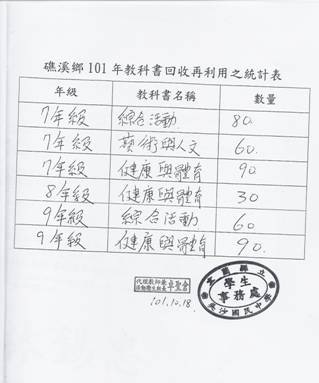 礁溪鄉101年教科書回收再利用之統計表
年級 教科書名稱 數量
7年級 綜合活動 80.
7年級 藝術與人文 60.
7年級 健康與體育 90.
8年級 健康與體育 30
9年級 綜合活動 60
9年級 健康與體育 90.
代理教師兼
活動衛生組長 卓聖倉
101.10.18.
宜蘭縣立
學生
事務處
吳沙國民中學